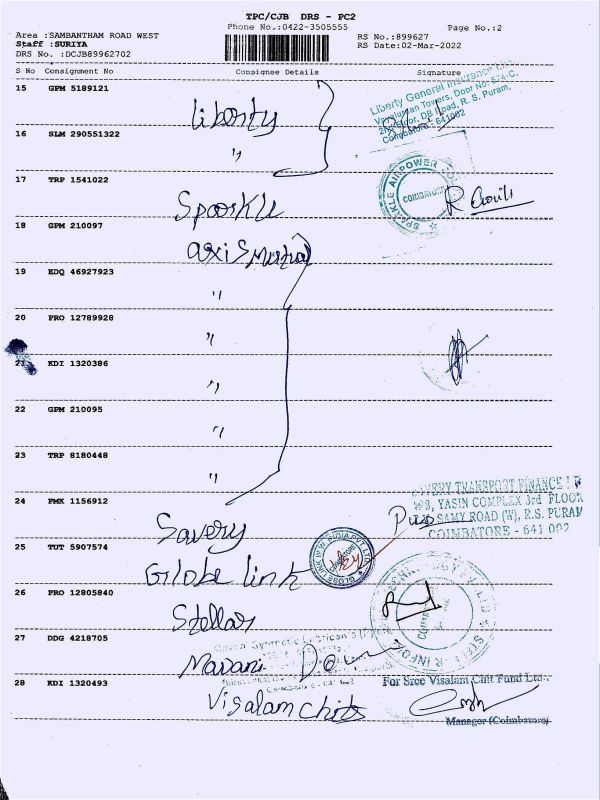 TPC/CJB DRS - PC2
Phone No.:0422-3505555
Page No.:2
Area :SAMBANTHAM ROAD WEST
Staff :SURIYA
DRS No. :DCJB89962702
RS No.:899627
RS Date:02-Mar-2022
S No Consignment No Consignee Details Signature
15 GPM 5189121
Liberty General Insurance Ltd.
2nd Floor, DB Road, R. S. Puram,
Coimbatore - 641002
Liberty
16 SLM 290551322
"
17 TRP 1541022
SPARKLE AIRPOWER
COIMBATORE
Sparkle
18 GPM 210097
axis Mutual
19 EDQ 46927923
"
20 PRO 12789928
"
21 KDI 1320386
"
22 GPM 210095
"
23 TRP 8180448
"
24 PMK 1156912
SAVERY TRANSPORT FINANCE
YASIN COMPLEX 3rd FLOOR
SAMY ROAD (W), R.S. PURAM
COIMBATORE - 641 002
Savery
25 TUT 5907574
GLOBE LINK WW INDIA PVT LTD
Globe link
26 PRO 12805840
Stellar
27 DDG 4218705
Madani
28 KDI 1320493
For Sree Visalam Chit Fund Ltd.,
Visalam Chits
Manager (Coimbatore)